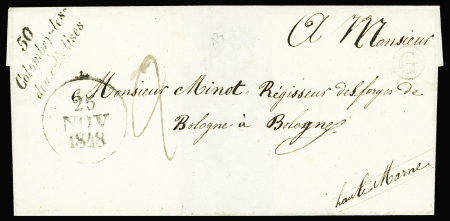 50
Colombey-les-
deux-Eglises
25
NOV
1848
2
A Monsieur
G
Monsieur Minot Régisseur des forges de
Bologne à Bologne
haute Marne